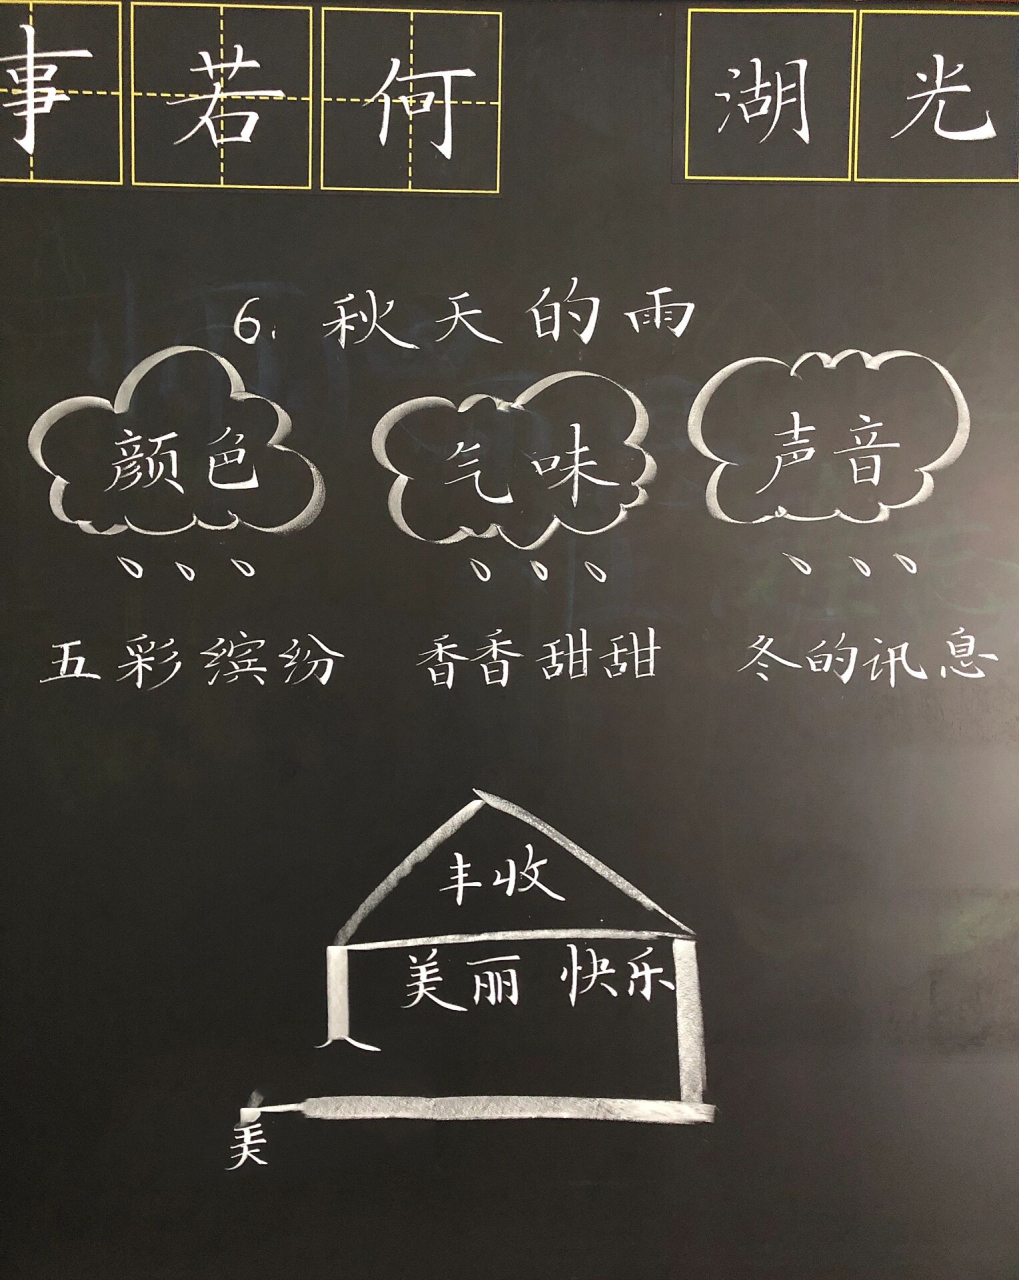 事若何 湖光
6. 秋天的雨
颜色 气味 声音
五彩缤纷 香香甜甜 冬的讯息
丰收
美丽 快乐
美